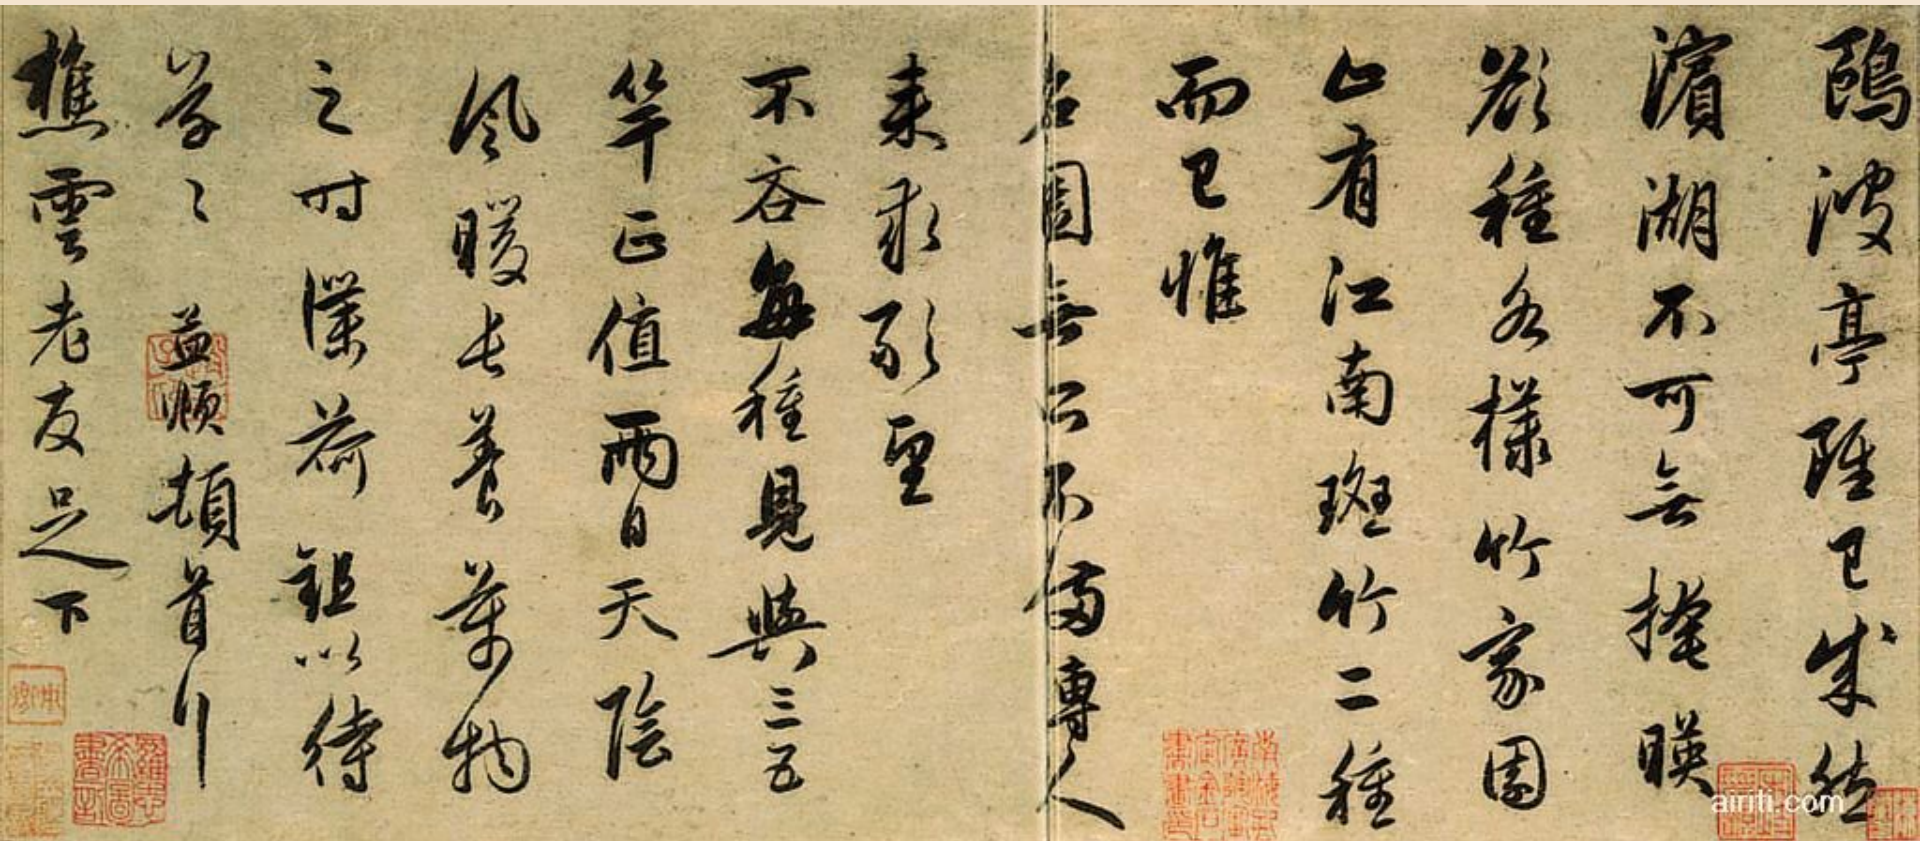 鷗波亭雖已成然
濱湖不可無掩映
欲種各樣竹家園
止有江南斑竹二種
而已惟
名園無所不備專人
来求敢望
不吝每種見與三五
竿正值雨日天陰
風暖長養萬物
之时僕荷鉏以待
孟頫頓首
樵雲老友足下
airiti.com